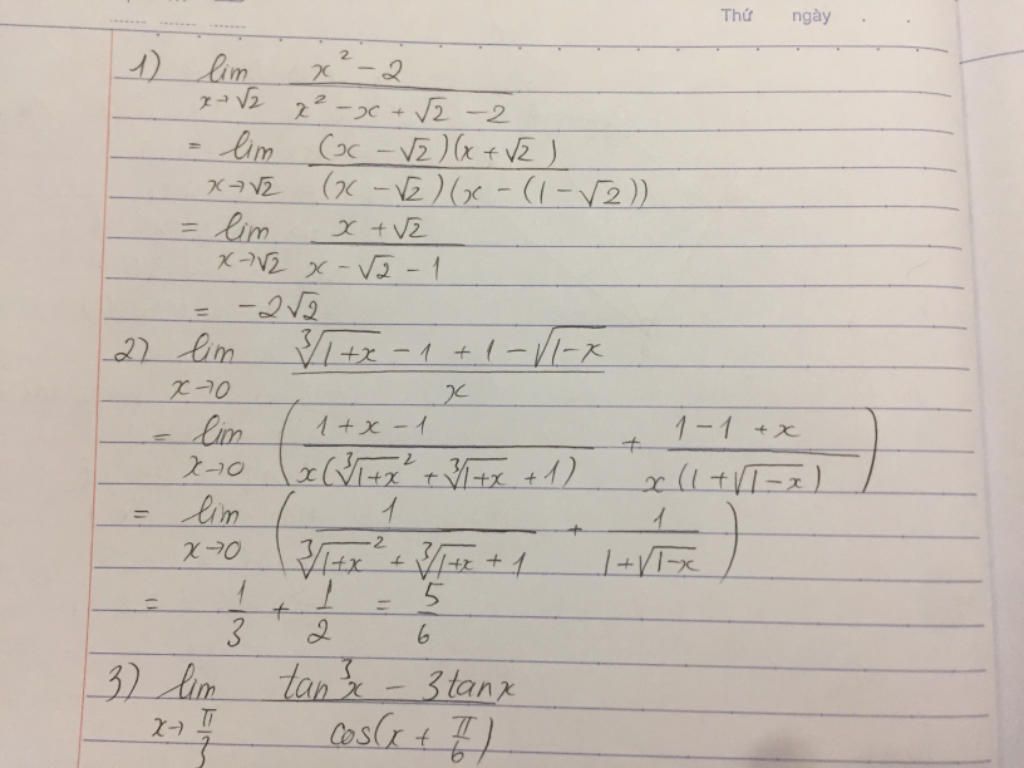 Thứ ngày . .
1) lim x→√2 (x² - 2)/(x² - x + √2 - 2)
= lim x→√2 ((x - √2)(x + √2))/((x - √2)(x - (1 - √2)))
= lim x→√2 (x + √2)/(x - √2 - 1)
= -2√2
2) lim x→0 (∛(1+x) - 1 + 1 - √(1-x))/x
= lim x→0 ((1 + x - 1)/(x(∛(1+x)² + ∛(1+x) + 1)) + (1 - 1 + x)/(x(1 + √(1-x))))
= lim x→0 (1/(∛(1+x)² + ∛(1+x) + 1) + 1/(1 + √(1-x)))
= 1/3 + 1/2 = 5/6
3) lim x→π/3 (tan³x - 3tanx)/(cos(x + π/6))